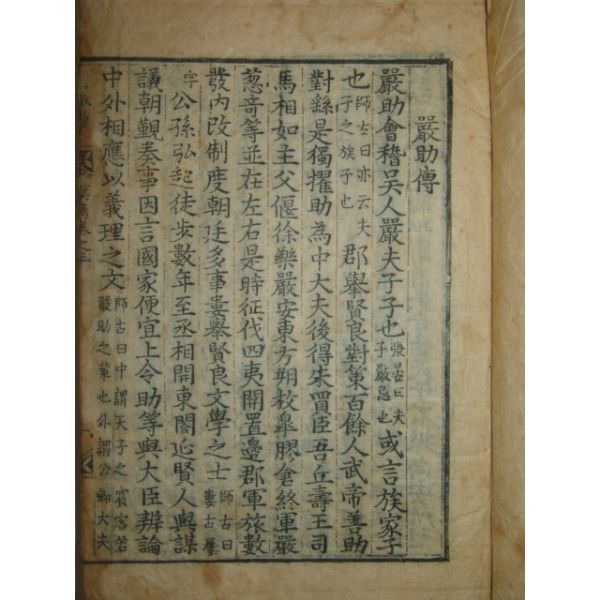 嚴助傳
嚴助會稽吳人嚴夫子子也張晏曰夫子嚴忌也或言族家子
也師古曰亦云夫子之族子也郡舉賢良對策百餘人武帝善助
對繇是獨擢助為中大夫後得朱買臣吾丘壽王司
馬相如主父偃徐樂嚴安東方朔枚皋膠倉終軍嚴
蔥竒等並在左右是時征伐四夷開置邊郡軍旅數
發內改制度朝廷多事婁舉賢良文學之士師古曰婁古屢
字公孫弘起徒步數年至丞相開東閤延賢人與謀
議朝覲奏事因言國家便宜上令助等與大臣辨論
中外相應以義理之文師古曰中謂天子之賓客若嚴助之輩也外謂公卿大夫